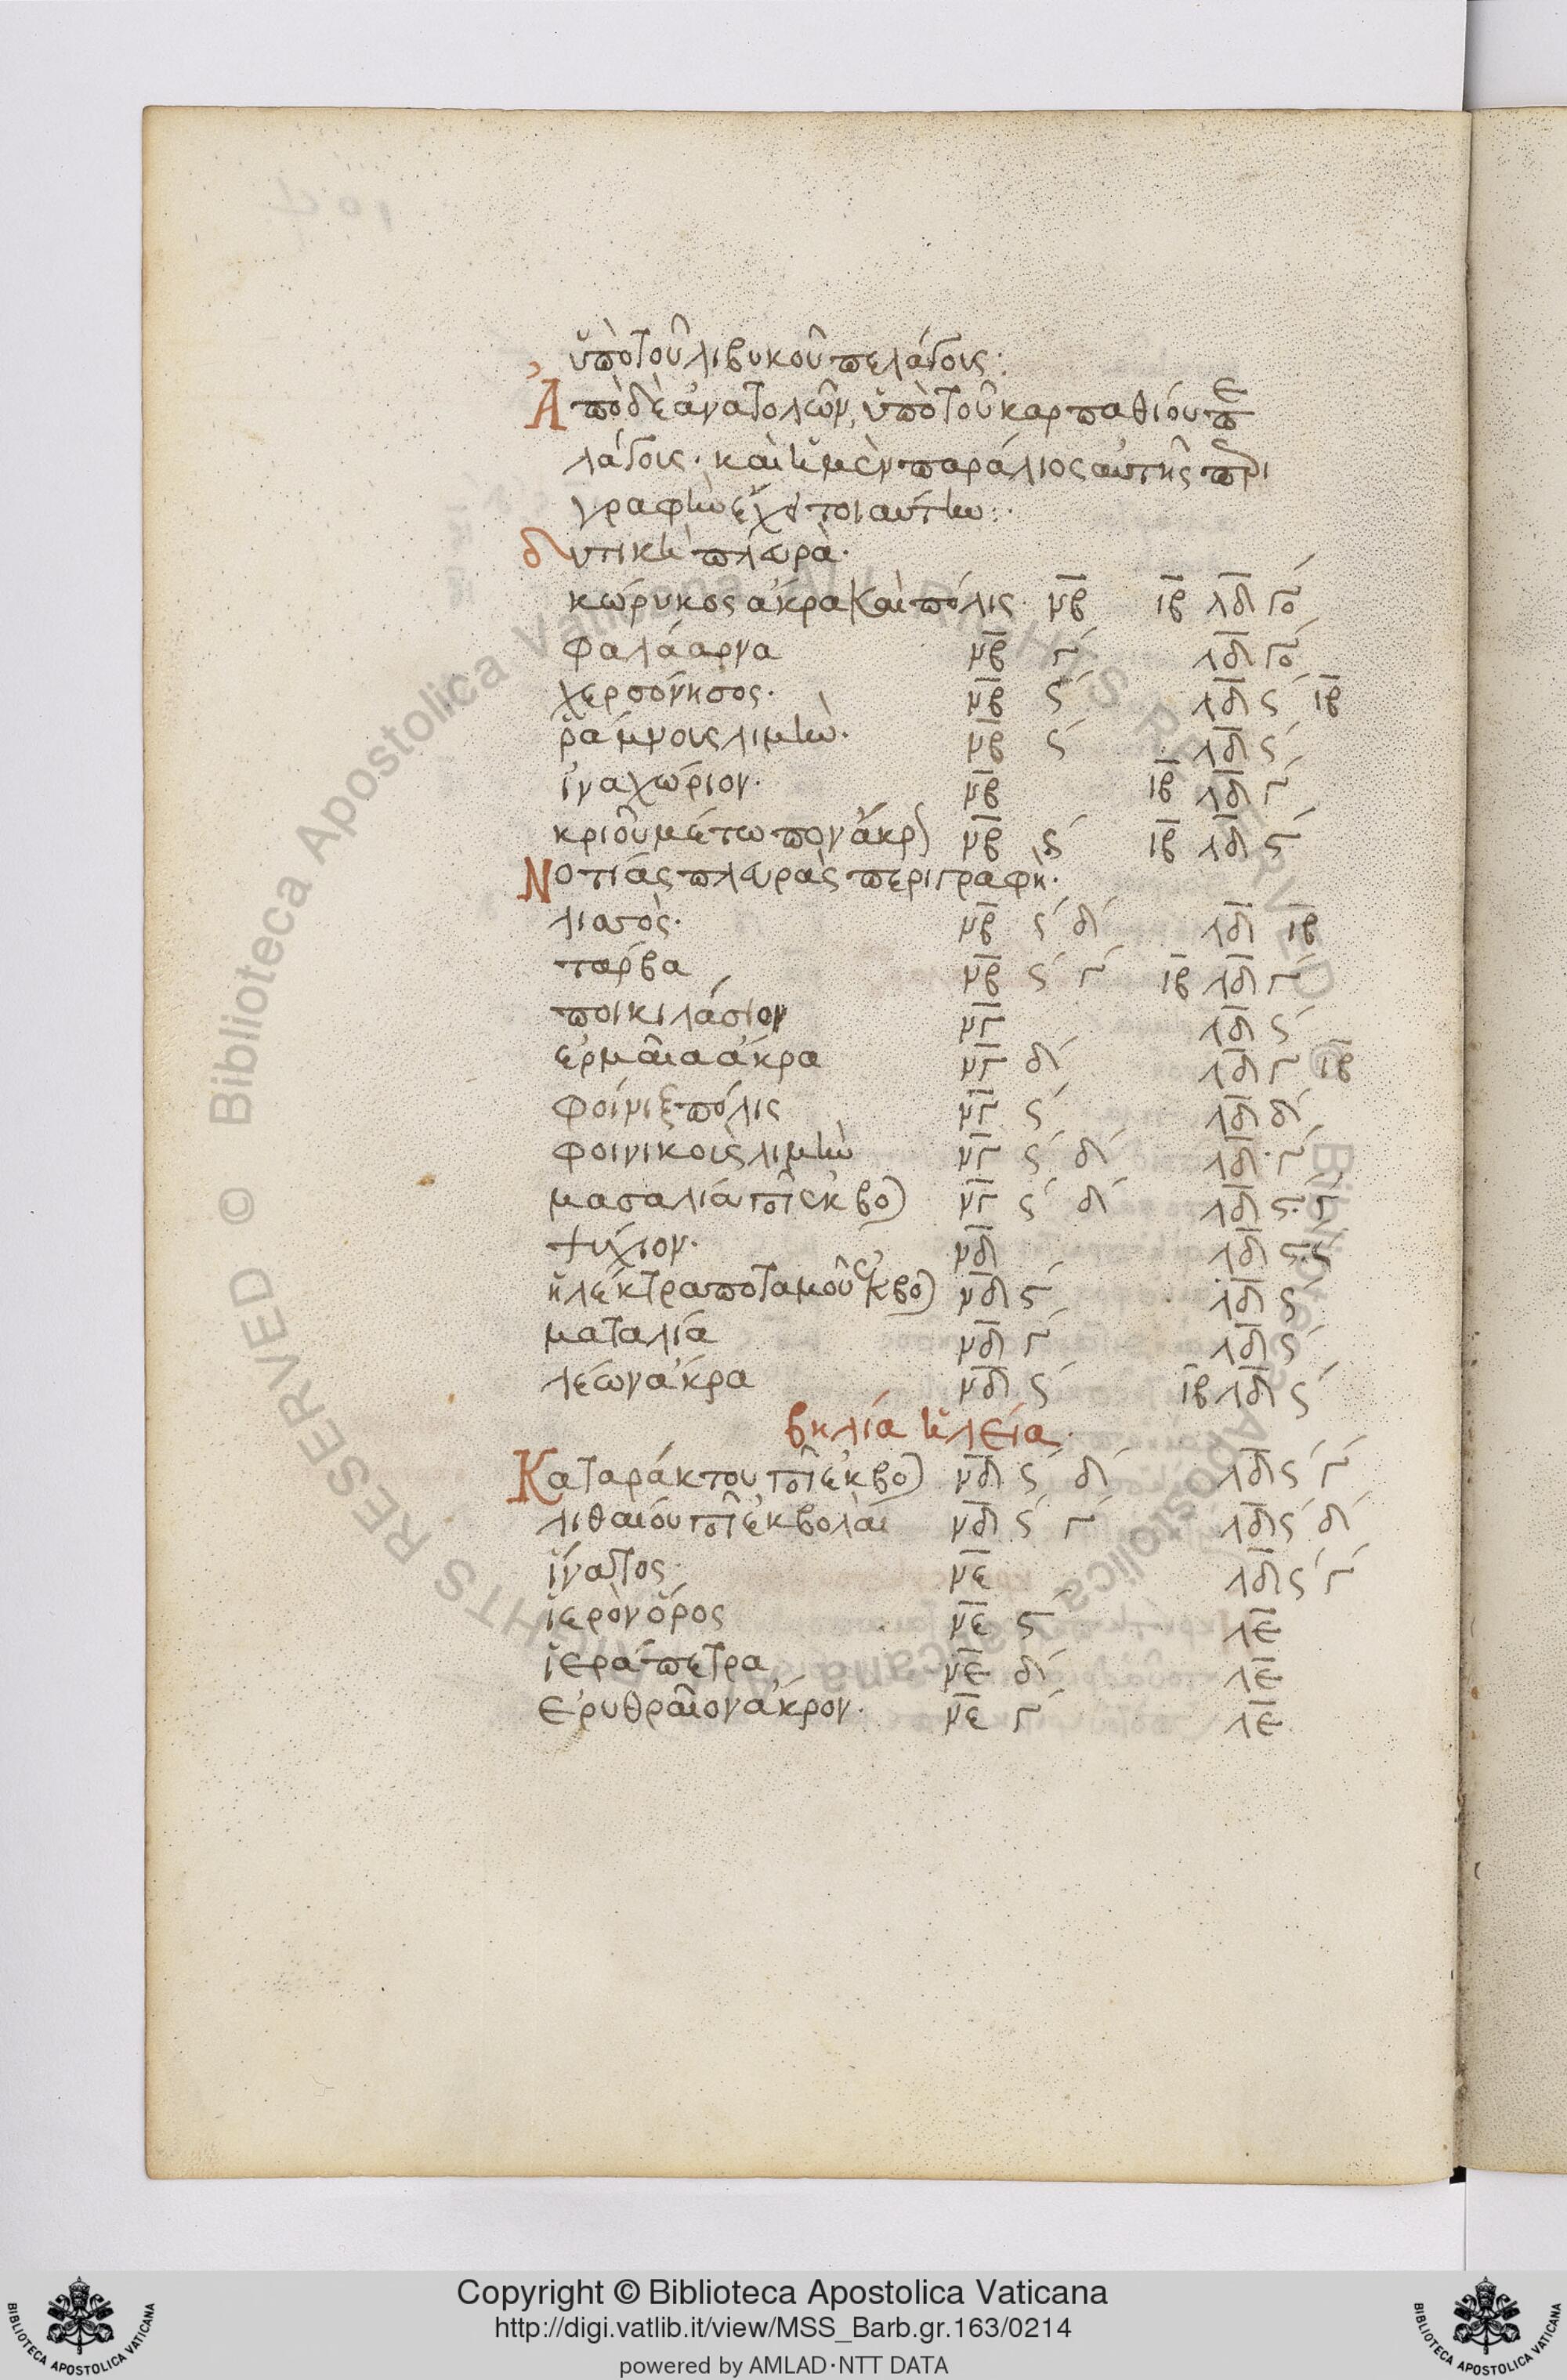 ὑπὸ τοῦ λιβυκοῦ πελάγους:
Ἀπὸ δὲ ἀνατολῶν, ὑπὸ τοῦ καρπαθίου πε
λάγους· καὶ ἡ μὲν παράλιος αὐτῆς περι
γραφὴν ἔχει τοιαύτην:·
δυτικὴ πλευρὰ·
κώρυκος ἄκρα καὶ πόλις· νβ ιβ λδ γο
φαλάαρνα νβ γ λδ γο
χερσόνησος· νβ ς λδ ς ιβ
ῥάμνους λιμὴν· νβ ς λδ ς
ἰναχώριον· νβ ιβ λδ γ
κριοῦ μέτωπον ἄκρ) νβ ς ιβ λδ ς
Νοτίας πλευρὰς περιγραφὴ·
λισσὸς· νβ ς δ λδ ιβ
τάρβα νβ ς γ ιβ λδ γ
ποικιλάσιον νγ λδ ς
ἑρμαία ἄκρα νγ δ λδ γ ιβ
φοίνιξ πόλις νγ ς λδ δ
φοινικοὺς λιμὴν νγ ς δ λδ γ
μασαλία ποτ ἐκβο) νγ ς δ λδ ς γ
ψύχιον· νδ λδ ς ς
ἠλέκτρα ποταμοῦ ἐκβο) νδ ς λδ ς
ματαλία νδ γ λδ ς
λέων ἄκρα νδ ς ιβ λδ ς
βηλία ἡ λεία
Καταράκτου ποτ ἐκβο) νδ ς δ λδ ς γ
λιθαίου ποτ ἐκβολαὶ νδ ς γ λδ ς δ
ἵνατος· νε λδ ς γ
ἱερὸν ὄρος νε ς λε
ἱερά πετρα νε δ λε
Ἐρυθραῖον ἄκρον· νε γ λε
Copyright © Biblioteca Apostolica Vaticana
http://digi.vatlib.it/view/MSS_Barb.gr.163/0214
powered by AMLAD·NTT DATA
BIBLIOTECA APOSTOLICA VATICANA
BIBLIOTECA APOSTOLICA VATICANA